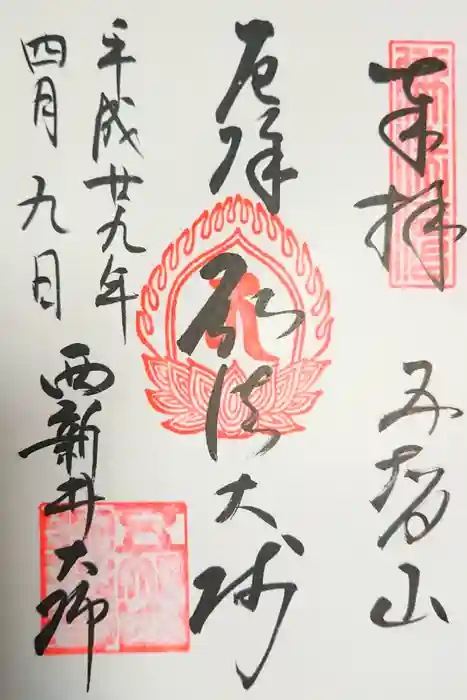 奉拝
五智山
厄除
弘法大師
平成廿九年
四月九日
西新井大師